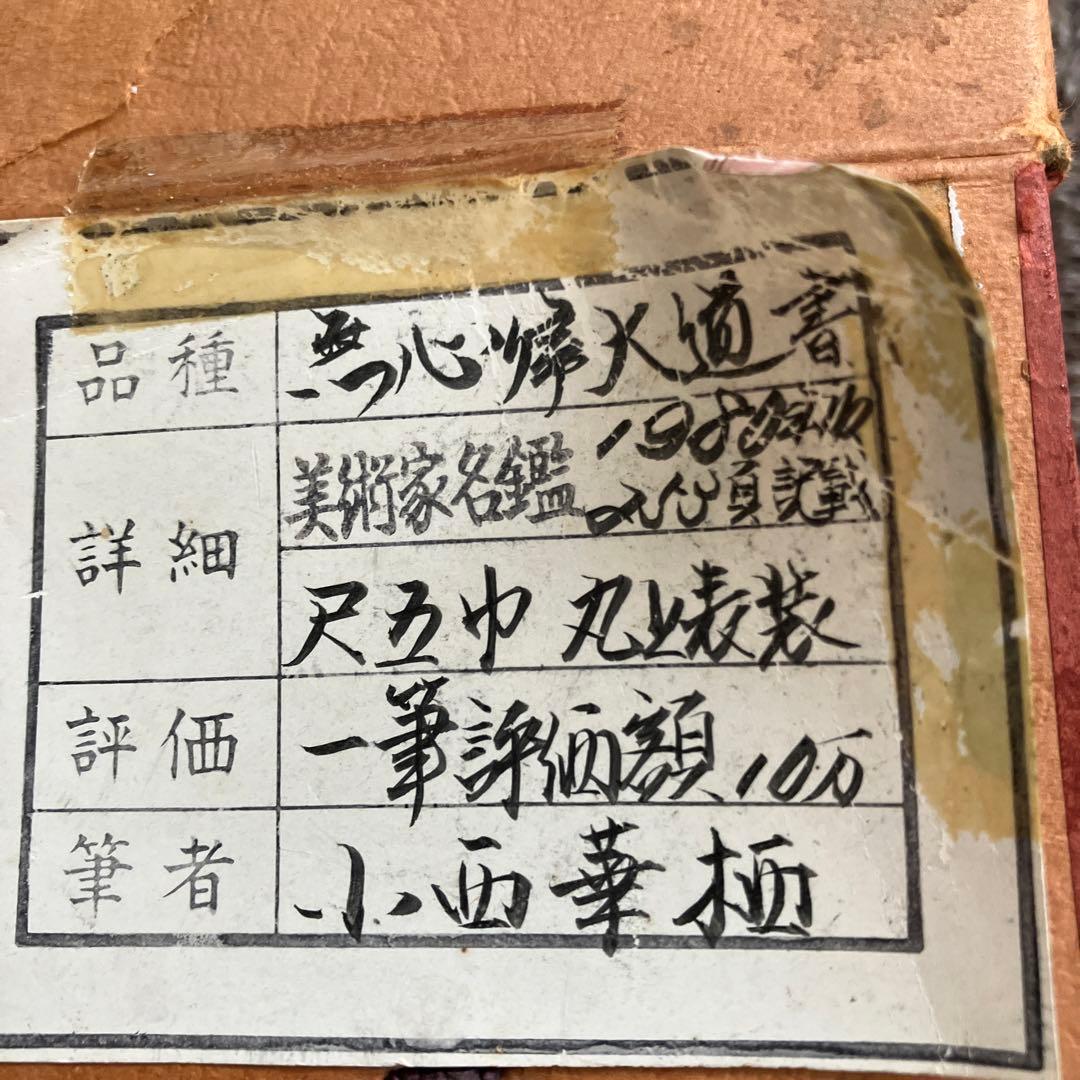 品種 無心帰大道書
詳細 美術家名鑑 1980年版
頁記載
尺五巾 丸上表装
評価 一筆評価額 10万
筆者 小西華